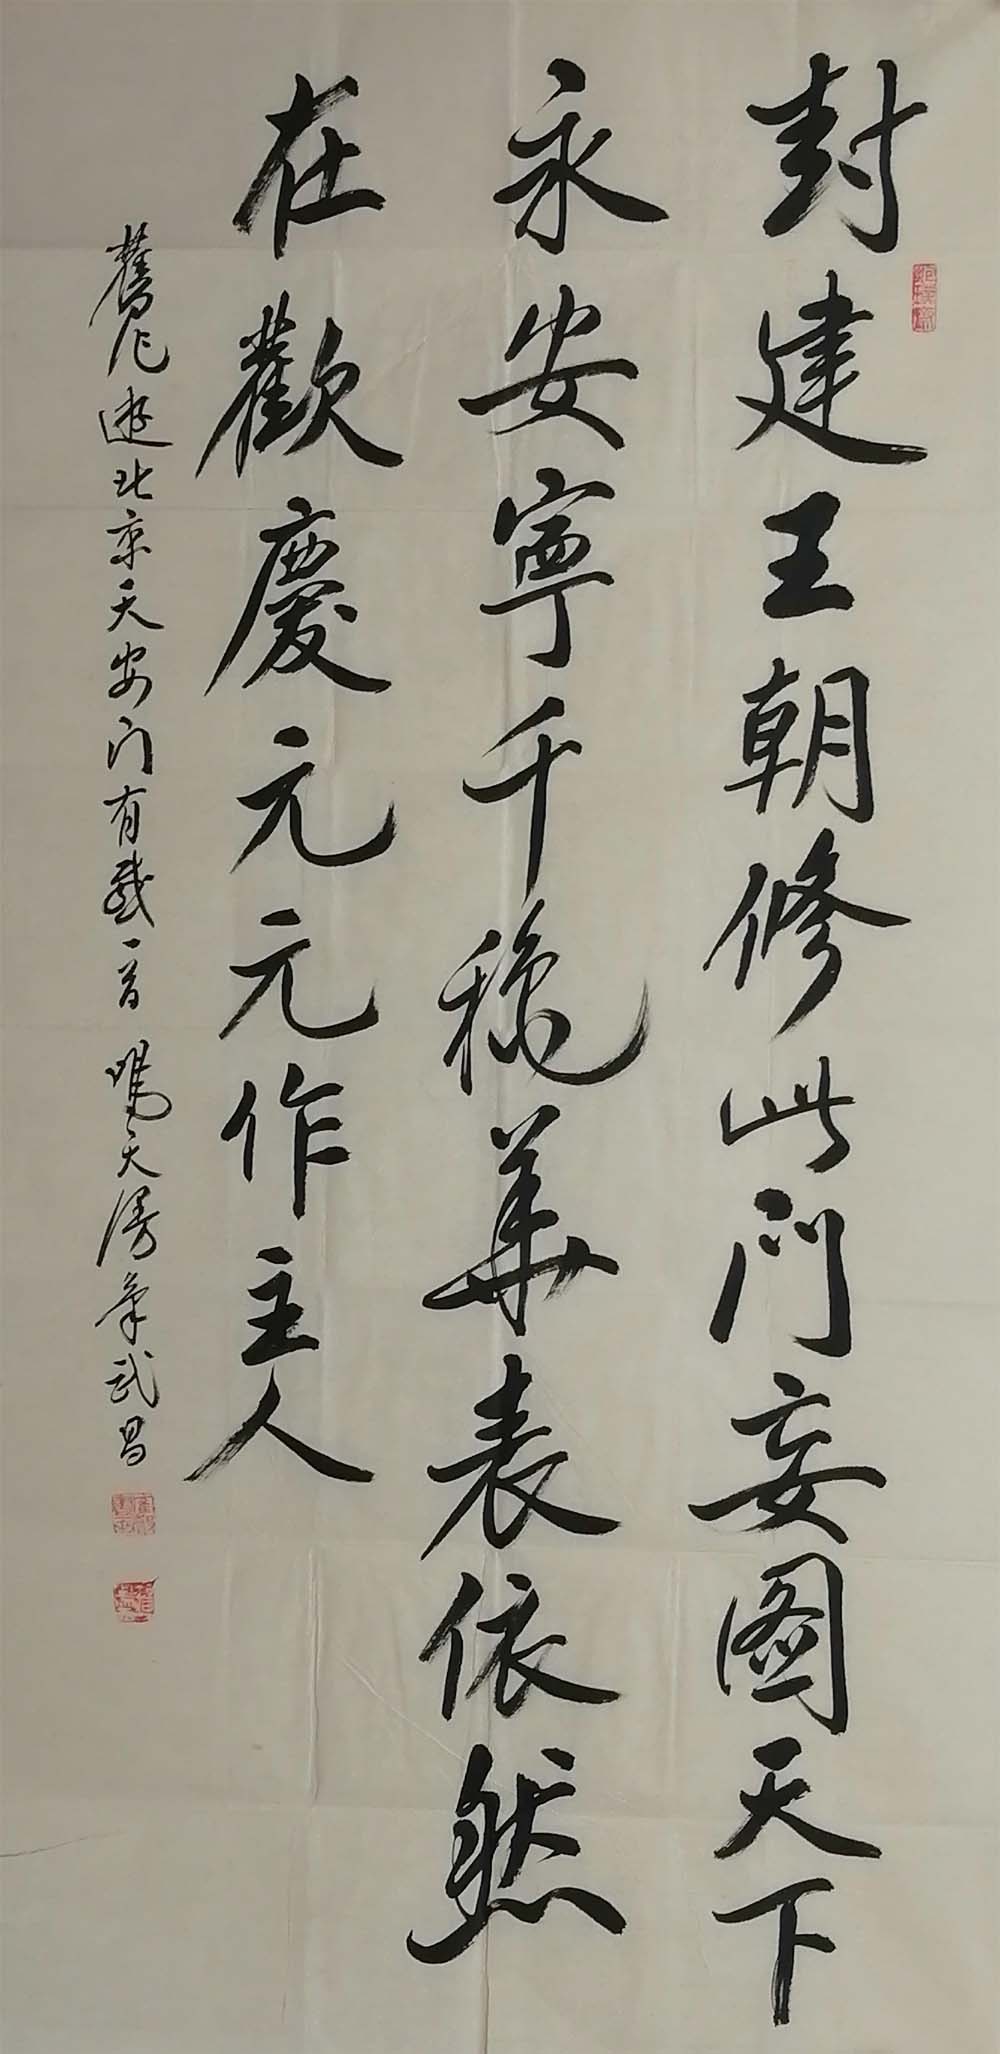 封建王朝修此门妄图天下
永安宁千穐華表依然
在歡慶元元作主人
舊作遊北京天安门有感一首 鳴天漫笔武昌